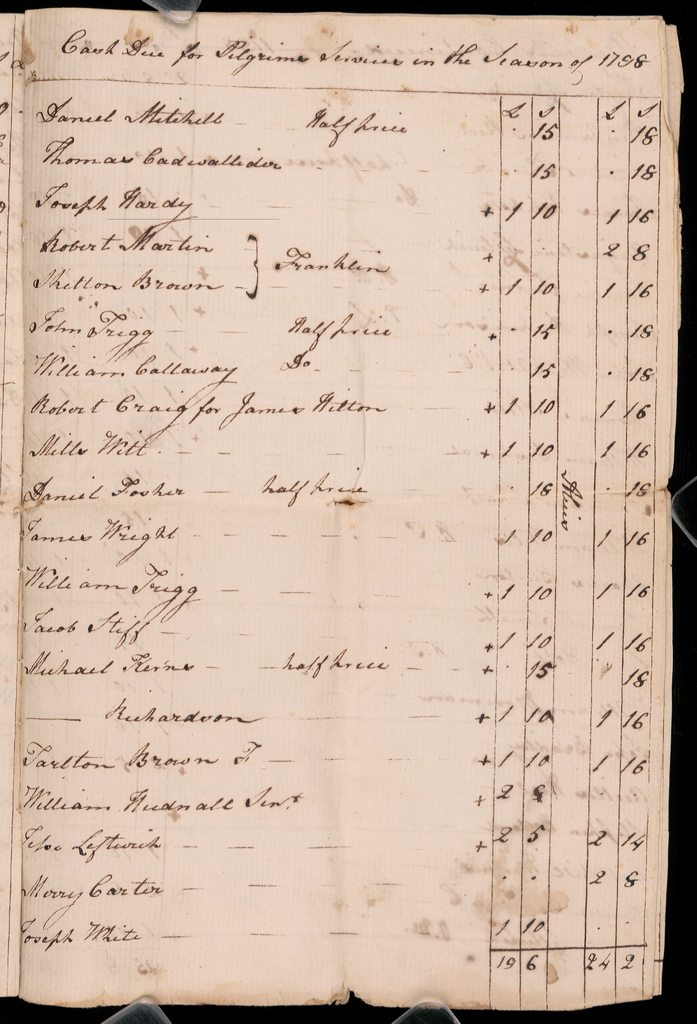 Cash Due for Pilgrims Services in the Season of 1798
£ s £ s
Daniel Mitchell Half price . 15 . 18
Thomas Cadwallider 15 . 18
Joseph Hardy + 1 10 1 16
Robert Martin + 2 8
Franklin
Skelton Brown + 1 10 1 16
John Trigg Half price + . 15 . 18
William Callaway Do 15 . 18
Robert Craig for James Hilton + 1 10 1 16
Mills Witt + 1 10 1 16
Daniel Tosher half price . 18 . 18
James Wright 1 10 1 16
William Trigg + 1 10 1 16
Jacob Stiff + 1 10 1 16
Michael Kerns half price + . 15 18
Richardson + 1 10 1 16
Tarlton Brown F + 1 10 1 16
William Hudnall Senr + 2
Leftwich + 2 5 2 14
Merry Carter . . 2 8
Joseph White 1 10 . .
19 6 24 2